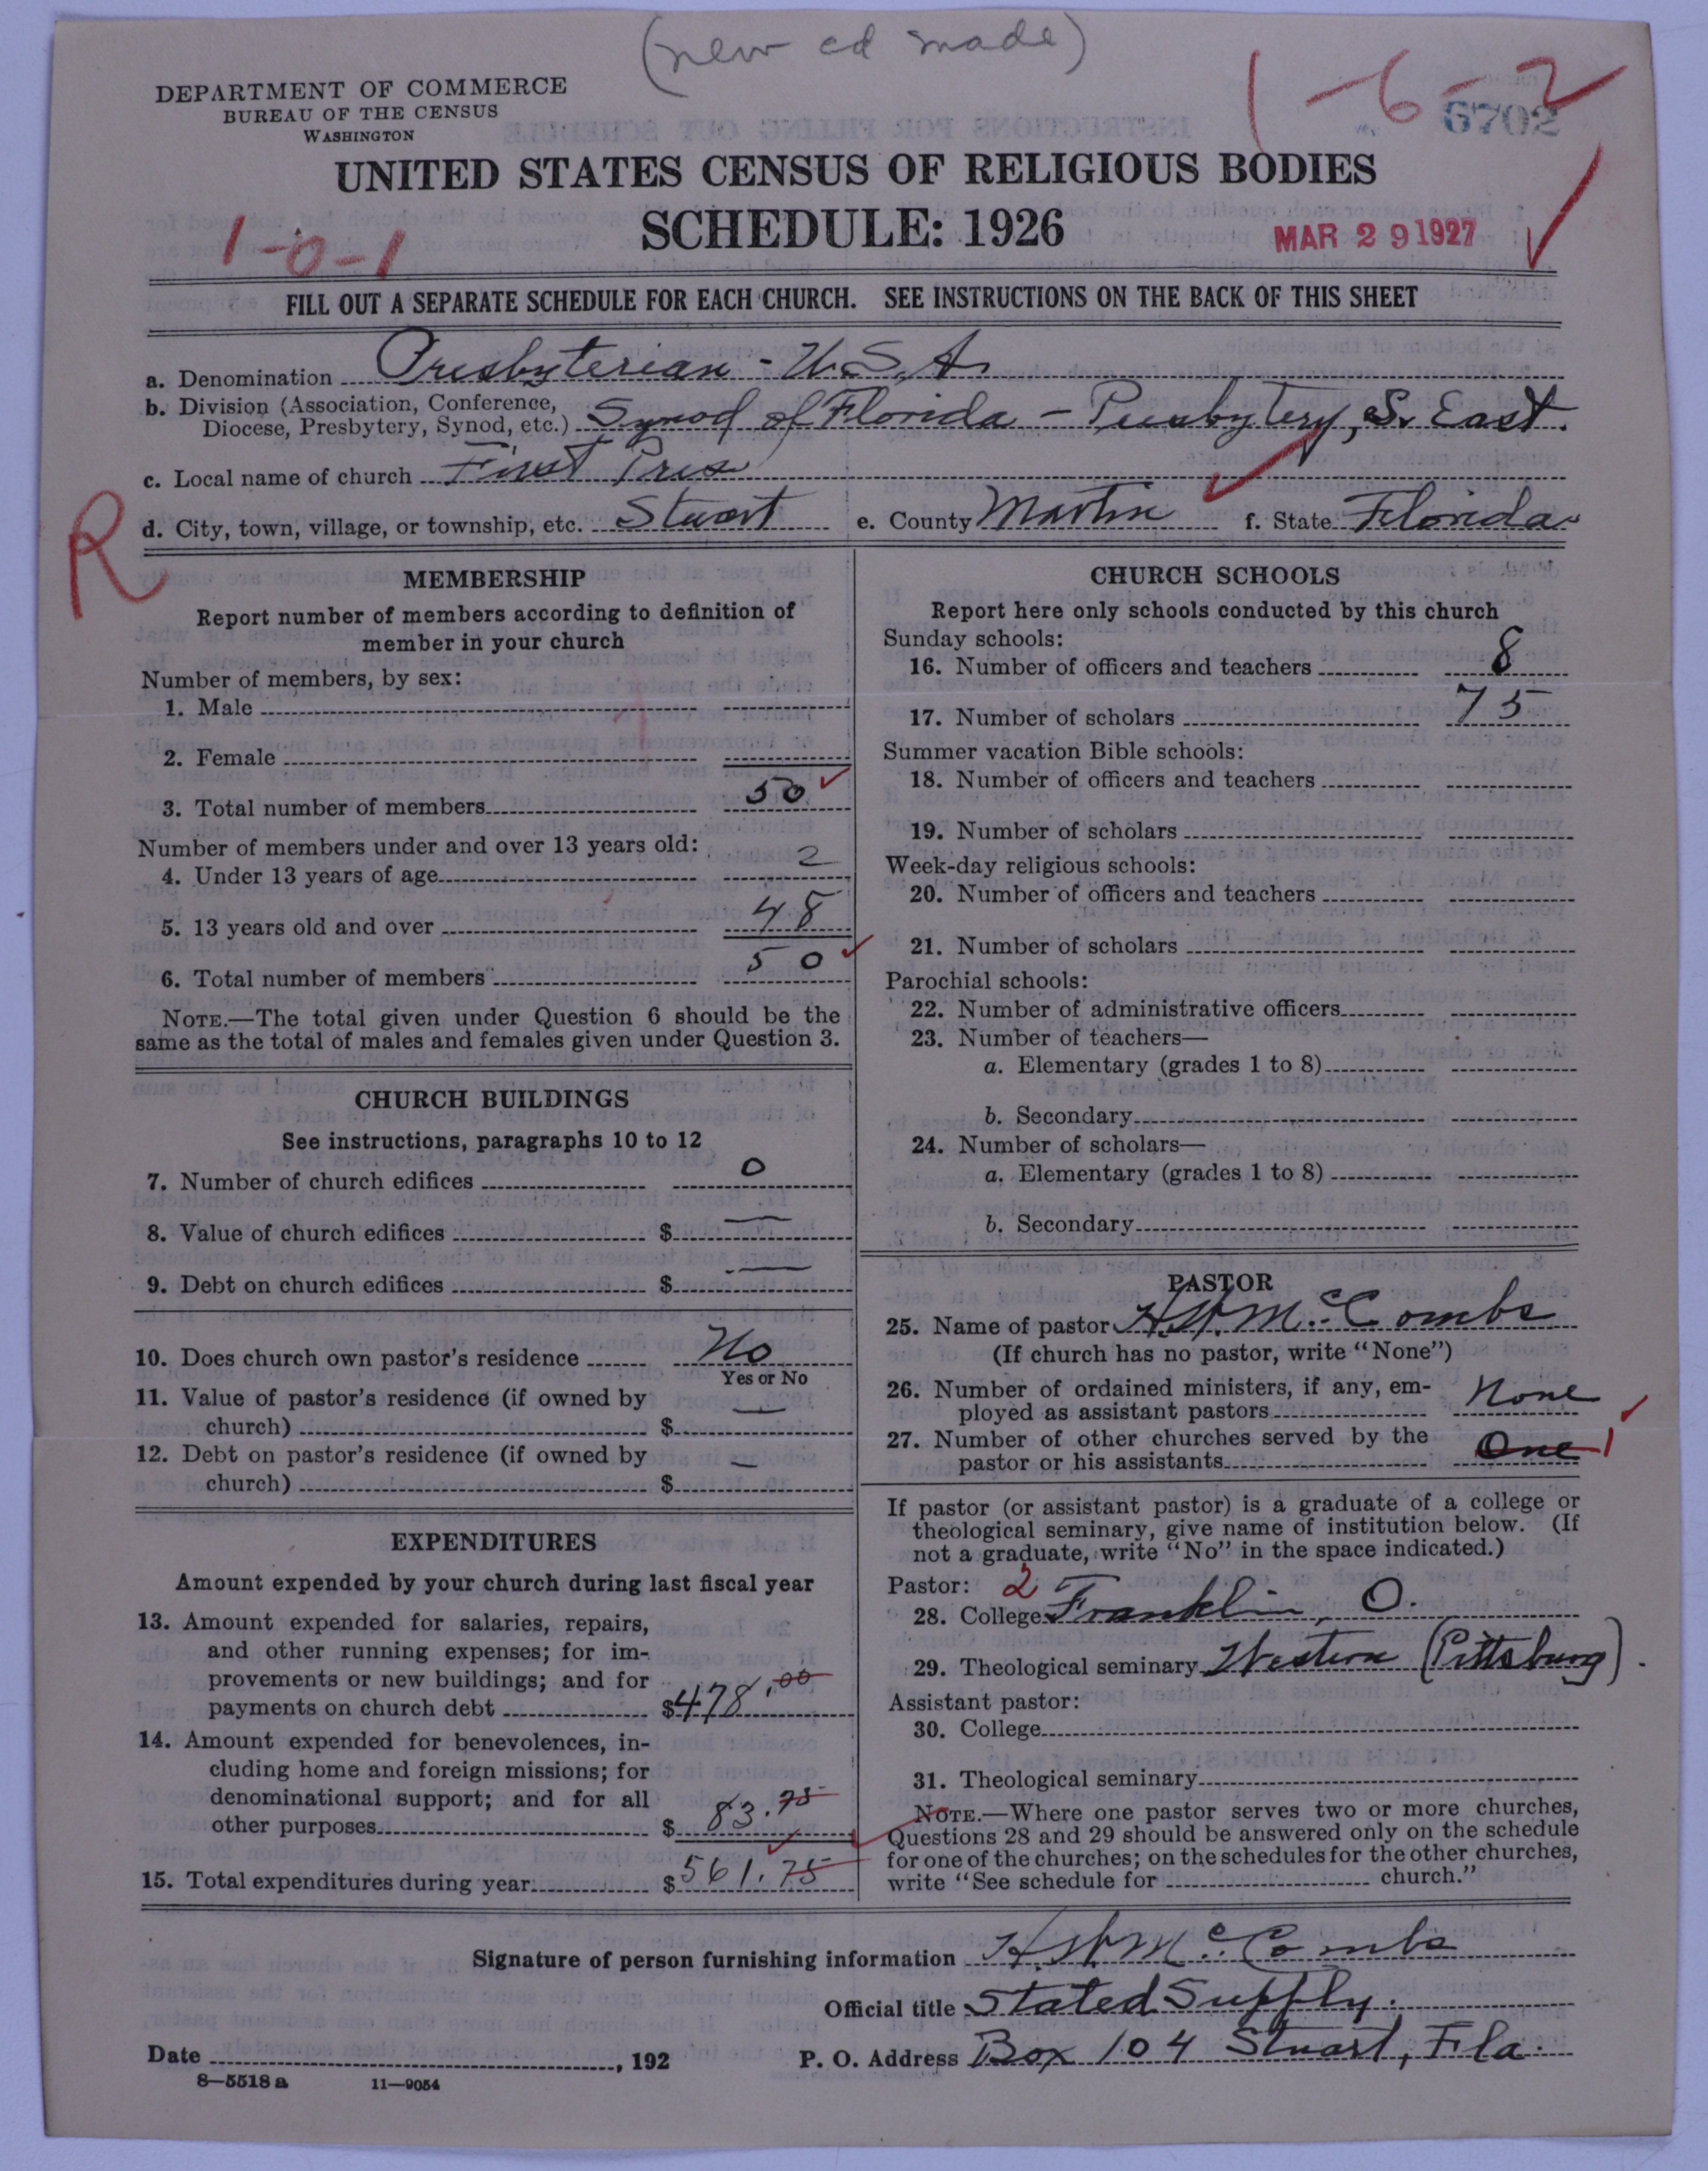 (new cd made)
1-6-2
DEPARTMENT OF COMMERCE
BUREAU OF THE CENSUS
WASHINGTON
6702
UNITED STATES CENSUS OF RELIGIOUS BODIES
SCHEDULE: 1926
MAR 29 1927
1-0-1
FILL OUT A SEPARATE SCHEDULE FOR EACH CHURCH. SEE INSTRUCTIONS ON THE BACK OF THIS SHEET
a. Denomination Presbyterian - U.S.A.
b. Division (Association, Conference,
Diocese, Presbytery, Synod, etc.) Synod of Florida - Presbytery, S. East.
c. Local name of church First Pres
R
d. City, town, village, or township, etc. Stuart e. County Martin f. State Florida
MEMBERSHIP
Report number of members according to definition of
member in your church
Number of members, by sex:
1. Male
2. Female
3. Total number of members 50
Number of members under and over 13 years old:
4. Under 13 years of age 2
5. 13 years old and over 48
6. Total number of members 50
NOTE.—The total given under Question 6 should be the
same as the total of males and females given under Question 3.
CHURCH BUILDINGS
See instructions, paragraphs 10 to 12
7. Number of church edifices 0
8. Value of church edifices $ —
9. Debt on church edifices $ —
10. Does church own pastor's residence No
Yes or No
11. Value of pastor's residence (if owned by
church) $ —
12. Debt on pastor's residence (if owned by
church) $ —
EXPENDITURES
Amount expended by your church during last fiscal year
13. Amount expended for salaries, repairs,
and other running expenses; for im-
provements or new buildings; and for
payments on church debt $478.00
14. Amount expended for benevolences, in-
cluding home and foreign missions; for
denominational support; and for all
other purposes $ 83.75
15. Total expenditures during year $561.75
CHURCH SCHOOLS
Report here only schools conducted by this church
Sunday schools:
16. Number of officers and teachers 8
17. Number of scholars 75
Summer vacation Bible schools:
18. Number of officers and teachers
19. Number of scholars
Week-day religious schools:
20. Number of officers and teachers
21. Number of scholars
Parochial schools:
22. Number of administrative officers
23. Number of teachers—
a. Elementary (grades 1 to 8)
b. Secondary
24. Number of scholars—
a. Elementary (grades 1 to 8)
b. Secondary
PASTOR
25. Name of pastor McCombs
(If church has no pastor, write "None")
26. Number of ordained ministers, if any, em-
ployed as assistant pastors None
27. Number of other churches served by the
pastor or his assistants One 1
If pastor (or assistant pastor) is a graduate of a college or
theological seminary, give name of institution below. (If
not a graduate, write "No" in the space indicated.)
Pastor: 2
28. College Franklin, O.
29. Theological seminary Western (Pittsburg).
Assistant pastor:
30. College
31. Theological seminary
NOTE.—Where one pastor serves two or more churches,
Questions 28 and 29 should be answered only on the schedule
for one of the churches; on the schedules for the other churches,
write "See schedule for church."
Signature of person furnishing information McCombs
Official title Stated Supply.
Date , 192 P. O. Address Box 104 Stuart, Fla.
8—5518 a 11—9054